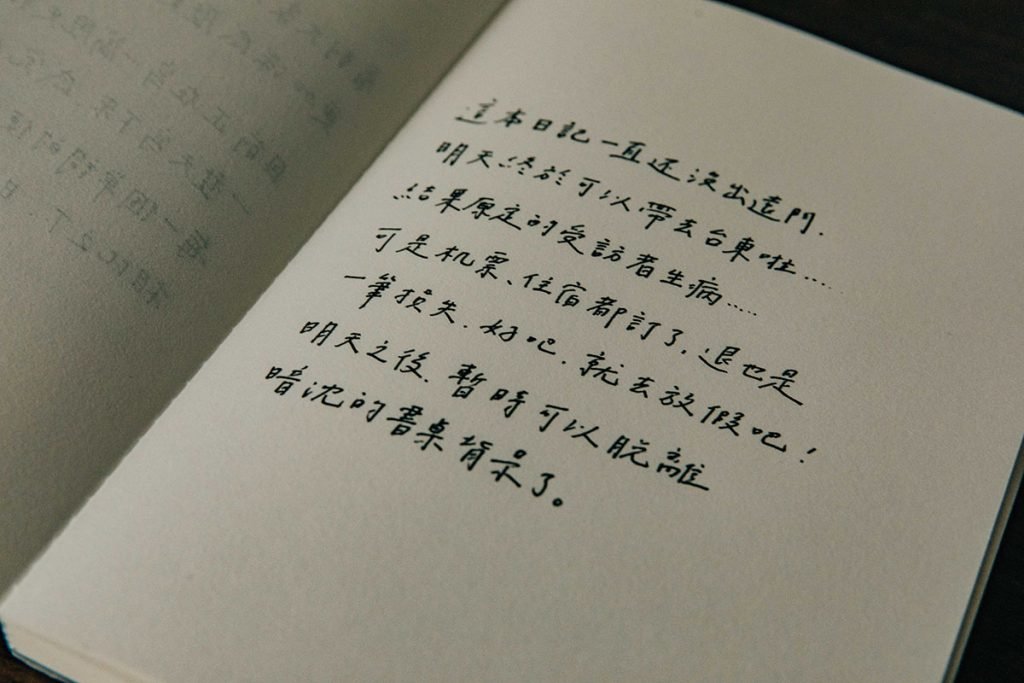 這本日記一直还沒出遠門.
明天終於可以帶去台東啦....
結果原定的受訪者生病.....
可是机票、住宿都訂了,退也是
一筆損失.好吧.就去放假吧!
明天之後.暫時可以脫離
暗沈的書桌背景了。